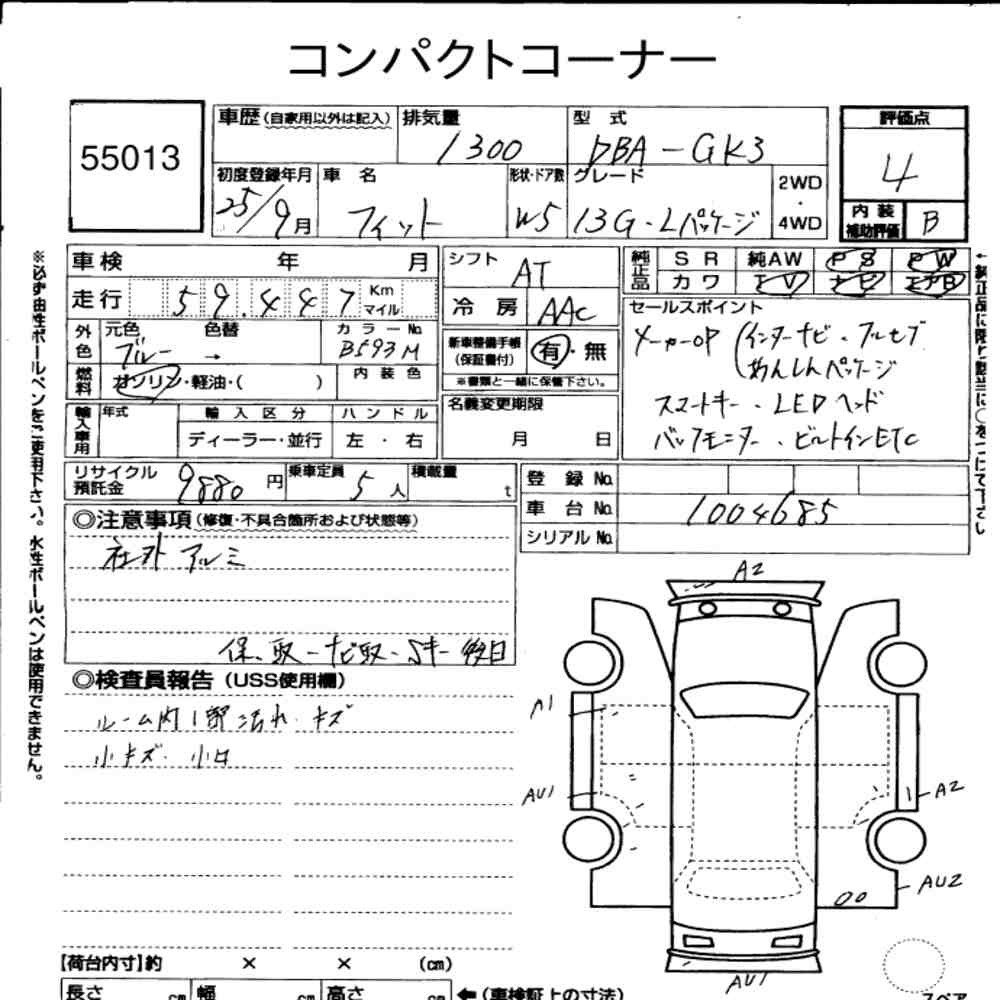 コンパクトコーナー
55013
車歴(自家用以外は記入) 排気量 1300 型式 DBA-GK3
評価点 4
初度登録年月 25/9月 車名 フィット 形状・ドア数 W5 グレード 13G・Lパッケージ 2WD・4WD
内装補助評価 B
車検 年 月
シフト AT
純正品 SR 純AW PS PW
カワ TV ナビ エアB
走行 59,447 Km マイル
冷房 AAC
セールスポイント
メーカーOP(インターナビ・フルセグ
あんしんパッケージ
スマートキー・LEDヘッド
バックモニター・ビルトインETC
外色 元色 ブルー → 色替 カラーNo B593M
新車整備手帳(保証書付) 有・無
※書類と一緒に保管下さい。
燃料 ガソリン・軽油・( ) 内装色
名義変更期限 月 日
輸入車用 年式 輸入区分 ハンドル
ディーラー・並行 左・右
リサイクル預託金 9880円 乗車定員 5人 積載量 t
登録No.
車台No. 1004685
シリアルNo.
◎注意事項(修復・不具合箇所および状態等)
社外アルミ
保、取-ナビ取-Sキー後日
◎検査員報告(USS使用欄)
ルーム内1部汚れ・キズ
小キズ 小凹
A2
A1
AU1
A2
AU2
AU1
【荷台内寸】約 × × (cm)
長さ cm 幅 cm 高さ cm ←(車検証上の寸法)
スペア
※必ず油性ボールペンをご使用下さい。水性ボールペンは使用できません。